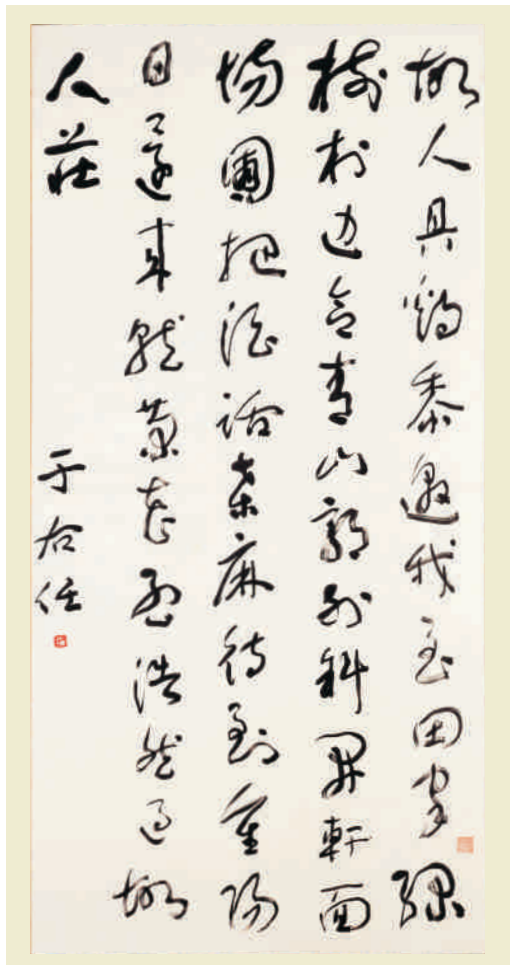 故人具鷄黍邀我至田家綠
樹村边合青山郭外斜開軒面
場圃把酒話桑麻待到重陽
日還來就菊花孟浩然過故
人莊
于右任